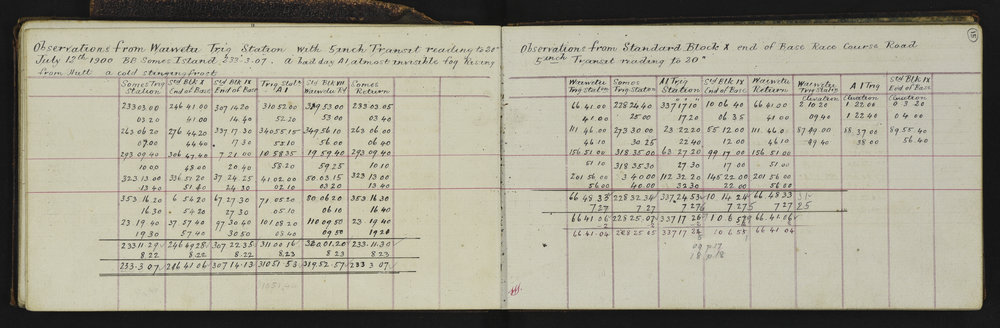 Observations from Waiwetu Trig Station with 5 inch Transit reading to 20"
July 12th 1900 BB Somes Island 233.3.07. A bad day A1 almost invisible fog Rising
from Hutt a cold stinging frost
Somes Trig Station | Std Blk X End of Base | Std Blk IX End of Base | Trig Statn A I | Std Blk Waiwetu Rd | Somes Return
233 03 00 | 246 41.00 | 307 14.20 | 310 52.00 | 319 53.00 | 233 03.05
03 20 | 41.00 | 14.40 | 52.20 | 53 00 | 03 40
263 06 20 | 276 44.20 | 337 17 30 | 340 55 15 | 349 56 10 | 263 06 00
07.00 | 44 40 | 17 30 | 55 10 | 56 00 | 06 40
293 09 40 | 306 47.40 | 7 21 00 | 10 58 35 | 19 59 40 | 293 09 40
10.00 | 48 00 | 20 40 | 58.20 | 59.25 | 10 10
323 13 00 | 336 51 20 | 37 24 25 | 41 02.00 | 50.03.15 | 323 13 00
13 40 | 51 40 | 24 30 | 02 10 | 03 20 | 13 40
353 16 20 | 6 54 20 | 67 27 30 | 71 05 20 | 80 06 20 | 353 16 30
16 30 | 54 20 | 27 30 | 05 10 | 06 10 | 16 40
23 19 40 | 37 57 40 | 97 30 40 | 101 08 20 | 110 09 50 | 23 19 40
19 30 | 57 40 | 30 50 | 08 40 | 09 50 | 19 20
233 11.29 | 246 49 28 | 307 22 35 | 311 00 16 | 320.01.20 | 233.11.30
8.22 | 8.22 | 8.22 | 8.23 | 8 23 | 8 23
233.3 07 | 246 41 06 | 307 14.13 | 310 51.53 | 319.52.57 | 233 3 07
Observations from Standard Block X end of Base Race Course Road
5 inch Transit reading to 20"
Waiwetu Trig Station | Somes Trig Station | A1 Trig Station | Std Blk IX End of Base | Waiwetu Return | Waiwetu Trig Station Elevation | A 1 Trig Elevation | Std Blk IX End of Base Elevation
66 41.00 | 228 24 40 | 337 17 10 | 10 06 40 | 66 41 00 | 2 10 20 | 1 22.00 | 0 3 20
41 00 | 25 00 | 17.20 | 06 35 | 41 00 | 09 40 | 1 22 40 | 0 4 00
111 46 00 | 273 30 00 | 23 22 20 | 55 12 00 | 111 46 0 | 87 49.00 | 88 37 00 | 89 55 40
46 10 | 30 25 | 22 40 | 12 00 | 46 10 | 49 40 | 38 00 | 56 40
156 51 00 | 318 35 00 | 68 27 20 | 99 17 00 | 156 51 00
51 10 | 318 35 30 | 27 30 | 17 00 | 51 00
201 56 00 | 3 40 00 | 112 32 20 | 145 22 00 | 201 56 00
56 00 | 40 00 | 32 30 | 22 00 | 56 00
66 48 33 | 228 32 34 | 337 24 53 | 10 14 24 | 66 48 33
7 27 | 7 27 | 7 27 | 7 27 | 7 27
66 41 06 | 228 25 07 | 337 17 26 | 10 6 57 | 66 41 06
66 41 04 | 228 25 05 | 337 17 24 | 10 6 55 | 66 41 04
09 p 17
18 p 18